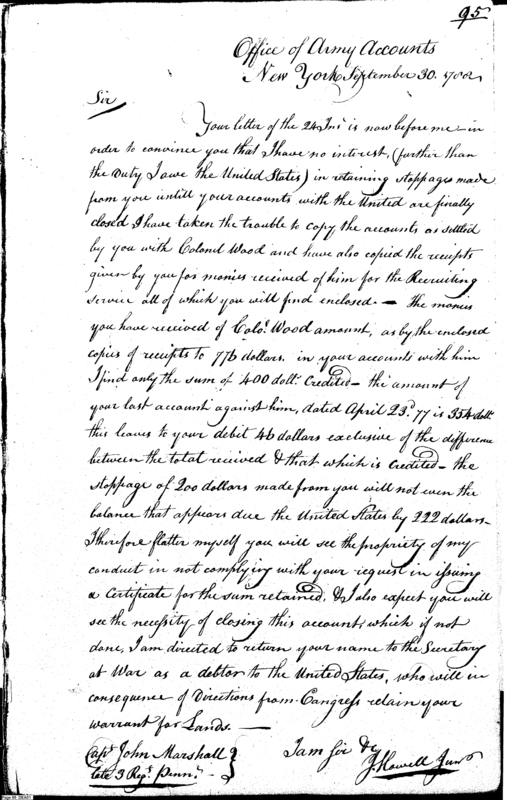 95
Office of Army Accounts
New York September 30. 1788
Sir
Your letter of the 24 Inst is now before me - in
order to convince you that I have no interest, (further than
the Duty I owe the United States) in retaining stoppages made
from you untill your accounts with the United are finally
closed I have taken the trouble to copy the accounts as settled
by you with Colonel Wood and have also copied the receipts
given by you for monies received of him for the Recruiting
service all of which you will find enclosed. — The monies
you have received of Colo. Wood amount, as by the enclosed
copies of receipts to 776 dollars. in your accounts with him
I find only the sum of 400 dolls. Credited - the amount of
your last account against him, dated April 23d. 77 is 354 dolls.
this leaves to your debit 46 dollars exclusive of the difference
between the total received & that which is Credited - the
stoppage of 200 dollars made from you will not even the
balance that appears due the United States by 222 dollars -
I therefore flatter myself you will see the propriety of my
conduct in not complying with your request in issuing
a Certificate for the sum retained. & I also expect you will
see the necessity of closing this account, which if not
done, I am directed to return your name to the Secretary
at War as a debtor to the United States, who will in
consequence of Directions from Congress retain your
warrant for Lands. —
Capt John Marshall
late 3 Regt. Pennn.
I am Sir &c
J. Howell Junr